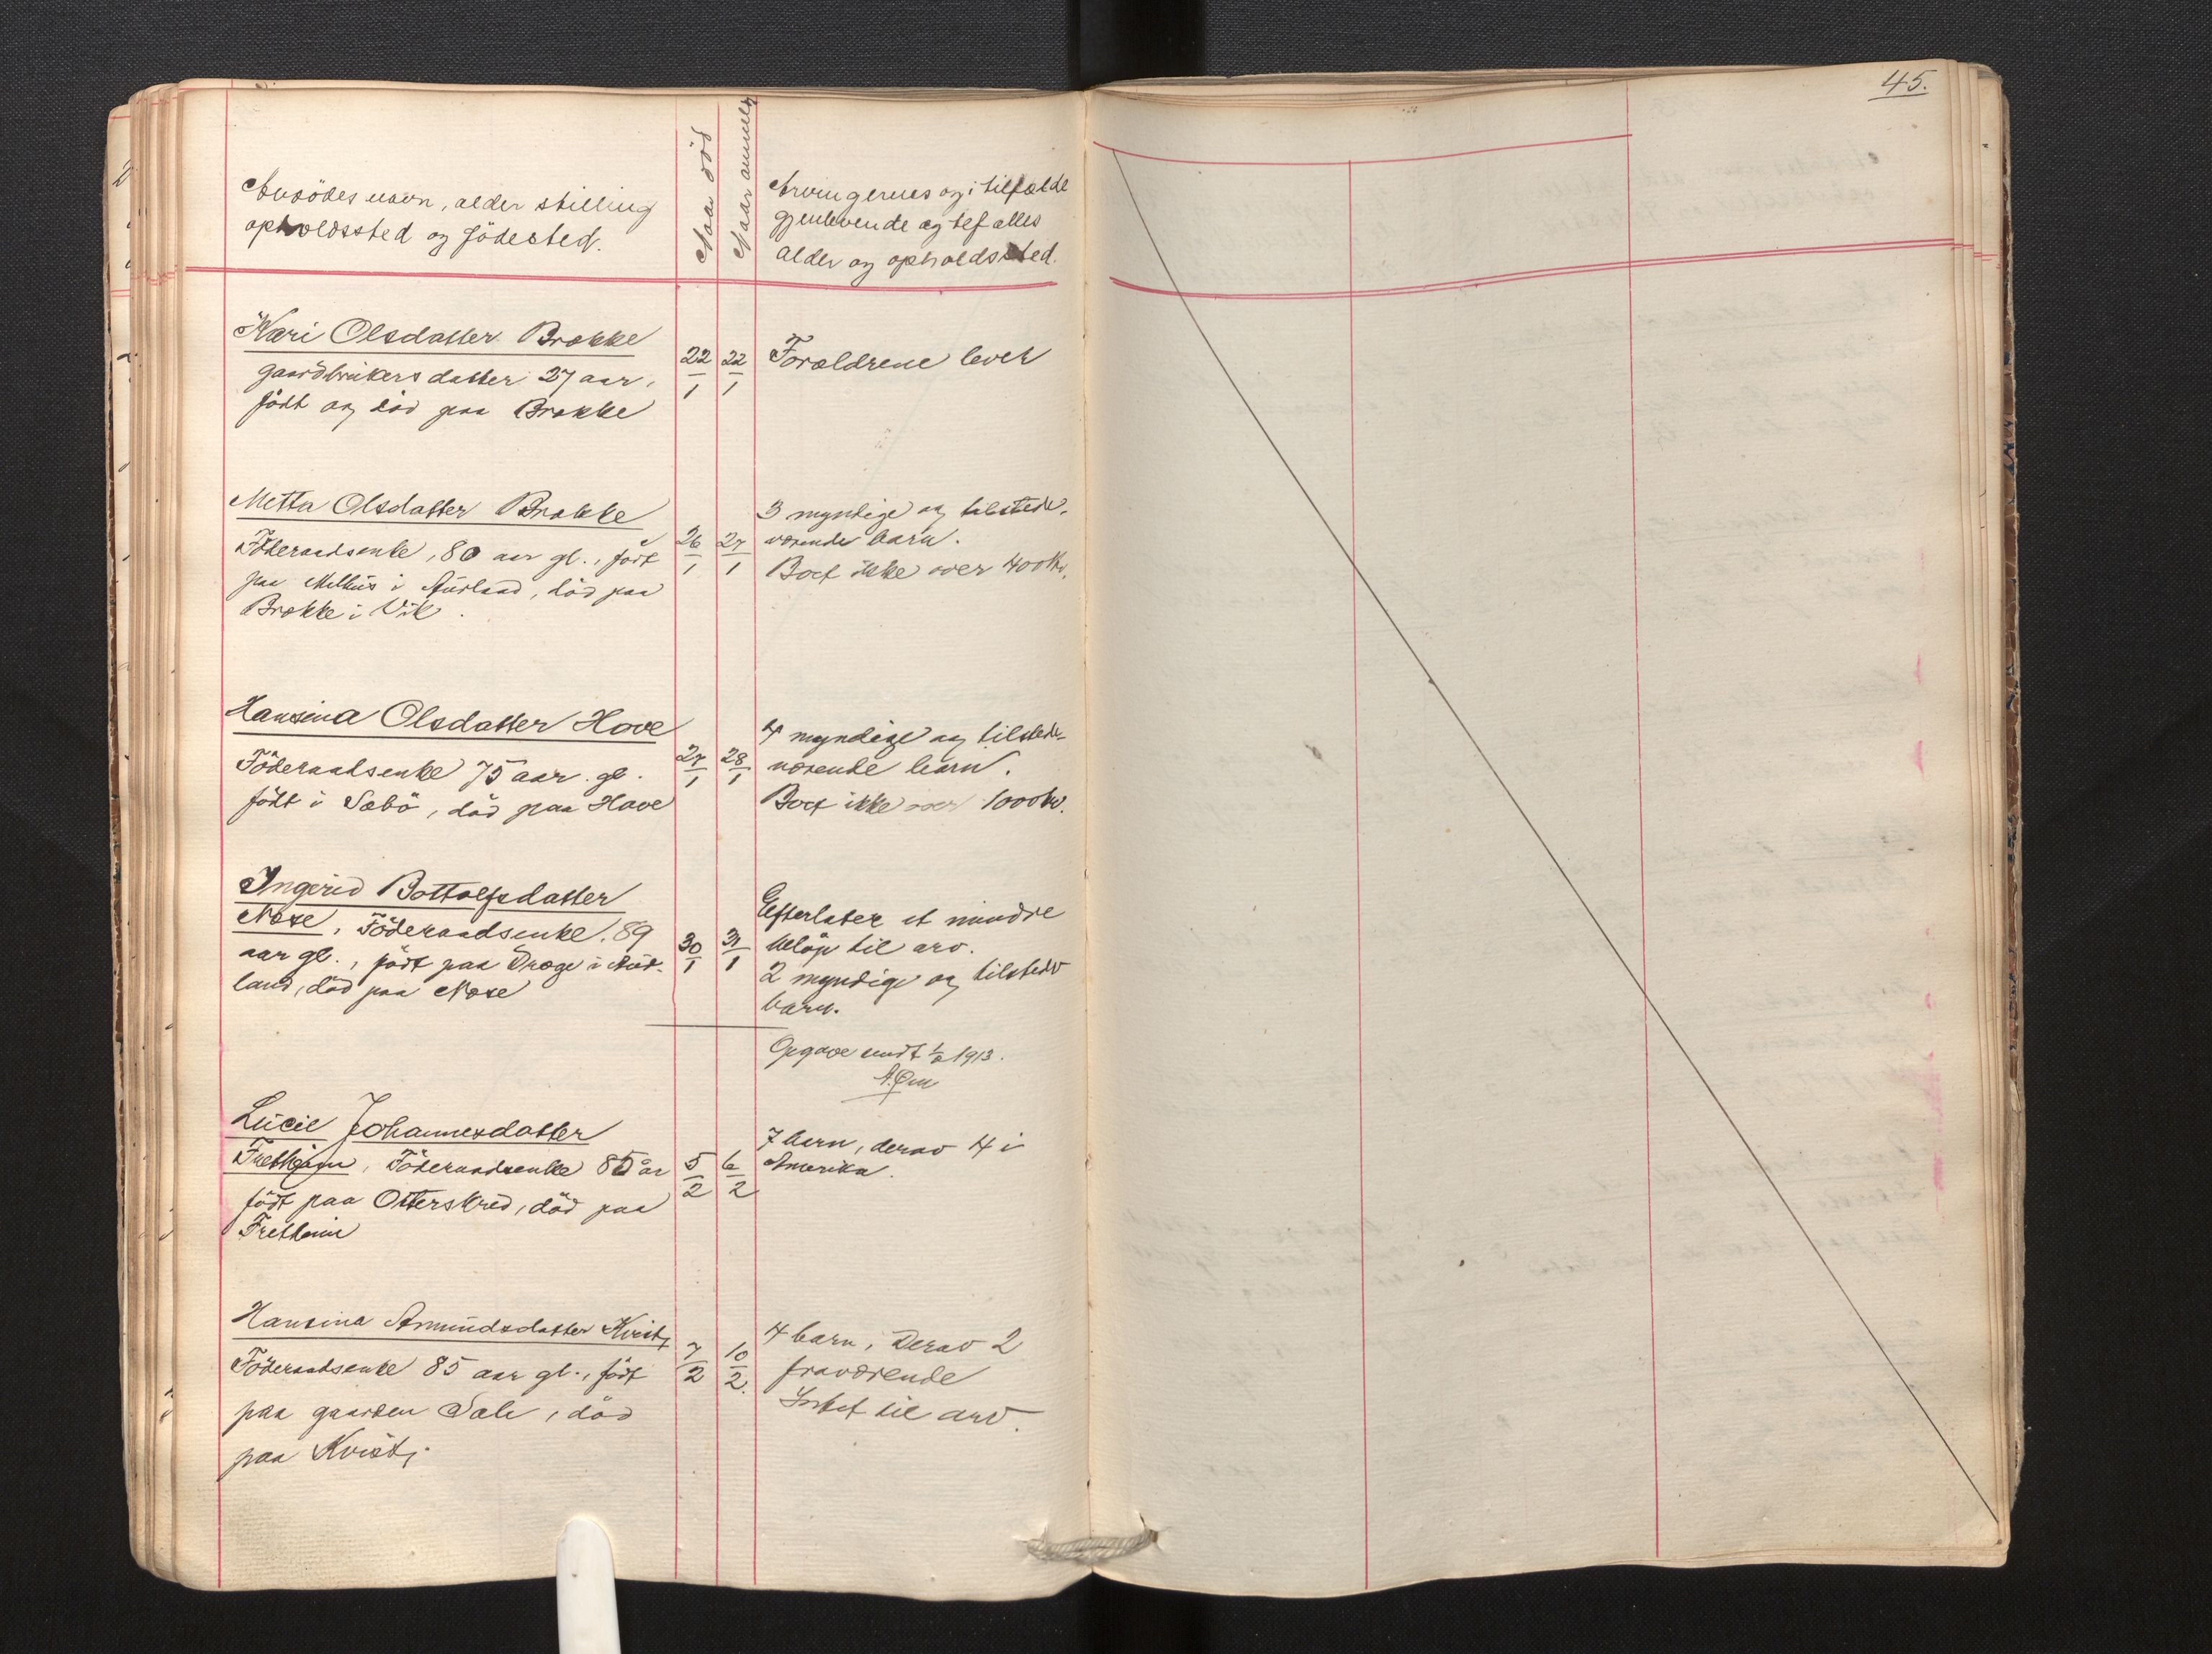 45.
Avdödes navn, alder stilling
opholdssted og födested.
Naar död
Naar anmeldt
Arvingernes og i tilfælde
gjenlevende ægtefælles
alder og opholdssted.
Kari Olsdatter Brække
gaardbrukersdatter 27 aar,
født og død paa Brække
22/1
22/1
Forældrene lever
Metta Olsdatter Brække
Föderaadsenke, 80 aar gl., født
paa Melhus i Aurland, död paa
Brække i Vik.
26/1
27/1
3 myndige og tilstede-
værende barn.
Boet ikke over 400 kr.
Hansina Olsdatter Hove
Föderaadsenke 75 aar gl.
född i Sæbö, död paa Hove
27/1
28/1
4 myndige og tilstede-
værende barn.
Boet ikke over 1000 kr.
Ingerid Bottolfsdatter
Nese, Föderaadsenke, 89
aar gl., född paa Drege i Aur-
land, död paa Nese
30/1
31/1
Efterlater et mindre
belöp til arv.
2 myndige og tilstedev
barn.
Opgave sendt 1/2 1913.
Lucie Johannesdatter
Fretheim, Föderaadsenke 85 år
född paa Otterskred, död paa
Fretheim
5/2
6/2
7 barn, derav 4 i
Amerika.
Hansina Amundsdatter Kvist,
Föderaadsenke 85 aar gl., född
paa gaarden Sale, död
paa Kvist,
7/2
10/2.
4 barn, derav 2
fraværende
Intet til arv.